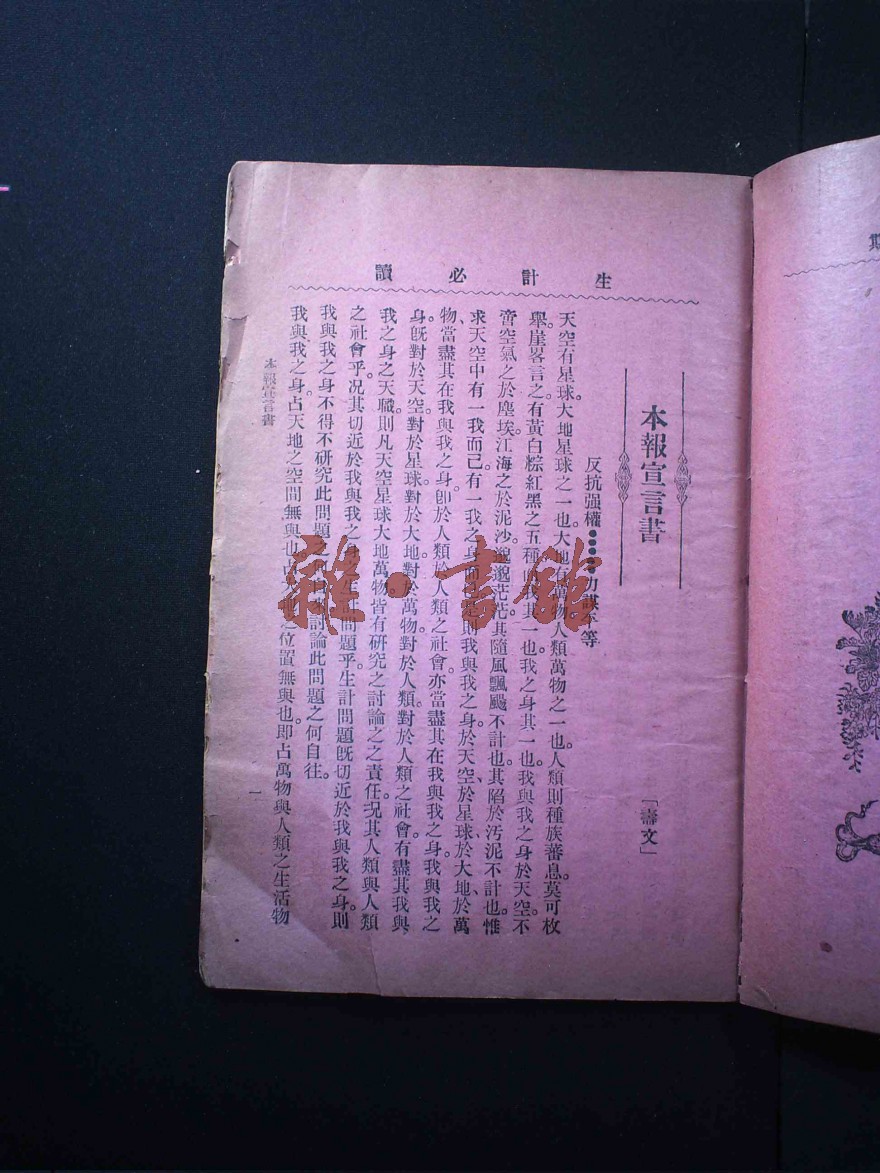 生計必讀
本報宣言書
「壽文」
反抗强權●●●●●切謀平等
天空有星球。大地星球之一也。大地萬物人類萬物之一也。人類則種族蕃息。莫可枚
舉。崖畧言之。有黃白棕紅黑之五種其一也。我之身其一也。我與我之身於天空。不
啻空氣之於塵埃。江海之於泥沙。邈邈茫茫。其隨風飄颺不計也。其陷於汚泥不計也。惟
求天空中有一我而已。有一我之身則我與我之身。於天空、於星球、於大地、於萬
物、當盡其在我與我之身。卽於人類於人類之社會。亦當盡其在我與我之身。我與我之
身。旣對於天空。對於星球。對於大地。對於萬物。對於人類。對於人類之社會。有盡其我與
我之身之天職。則凡天空星球大地萬物。皆有研究之討論之之責任。况其人類與人類
之社會乎。况其切近於我與我之身生計問題乎。生計問題旣切近於我與我之身。則
我與我之身不得不研究此問題之討論此問題之何自往。
我與我之身。占天地之空間無與也。占之位置無與也。即占萬物與人類之生活物
本報宣言書
一
雜·書館